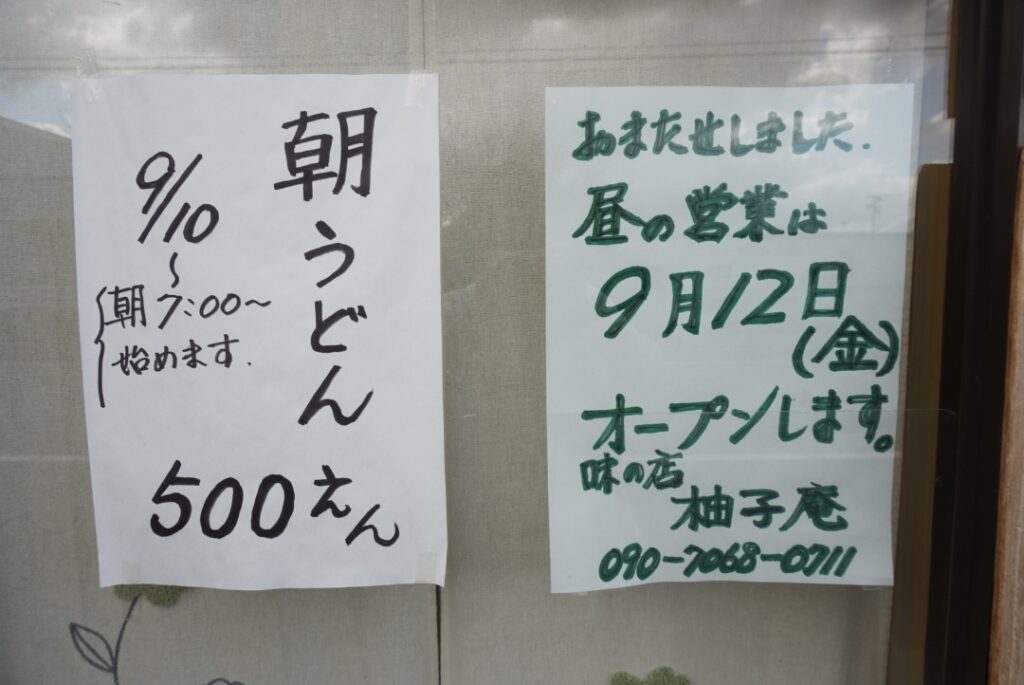 朝うどん
9/10
~
朝7:00~
始めます.
500えん
おまたせしました.
昼の営業は
9月12日
(金)
オープンします。
味の店
柚子庵
090-7068-0711